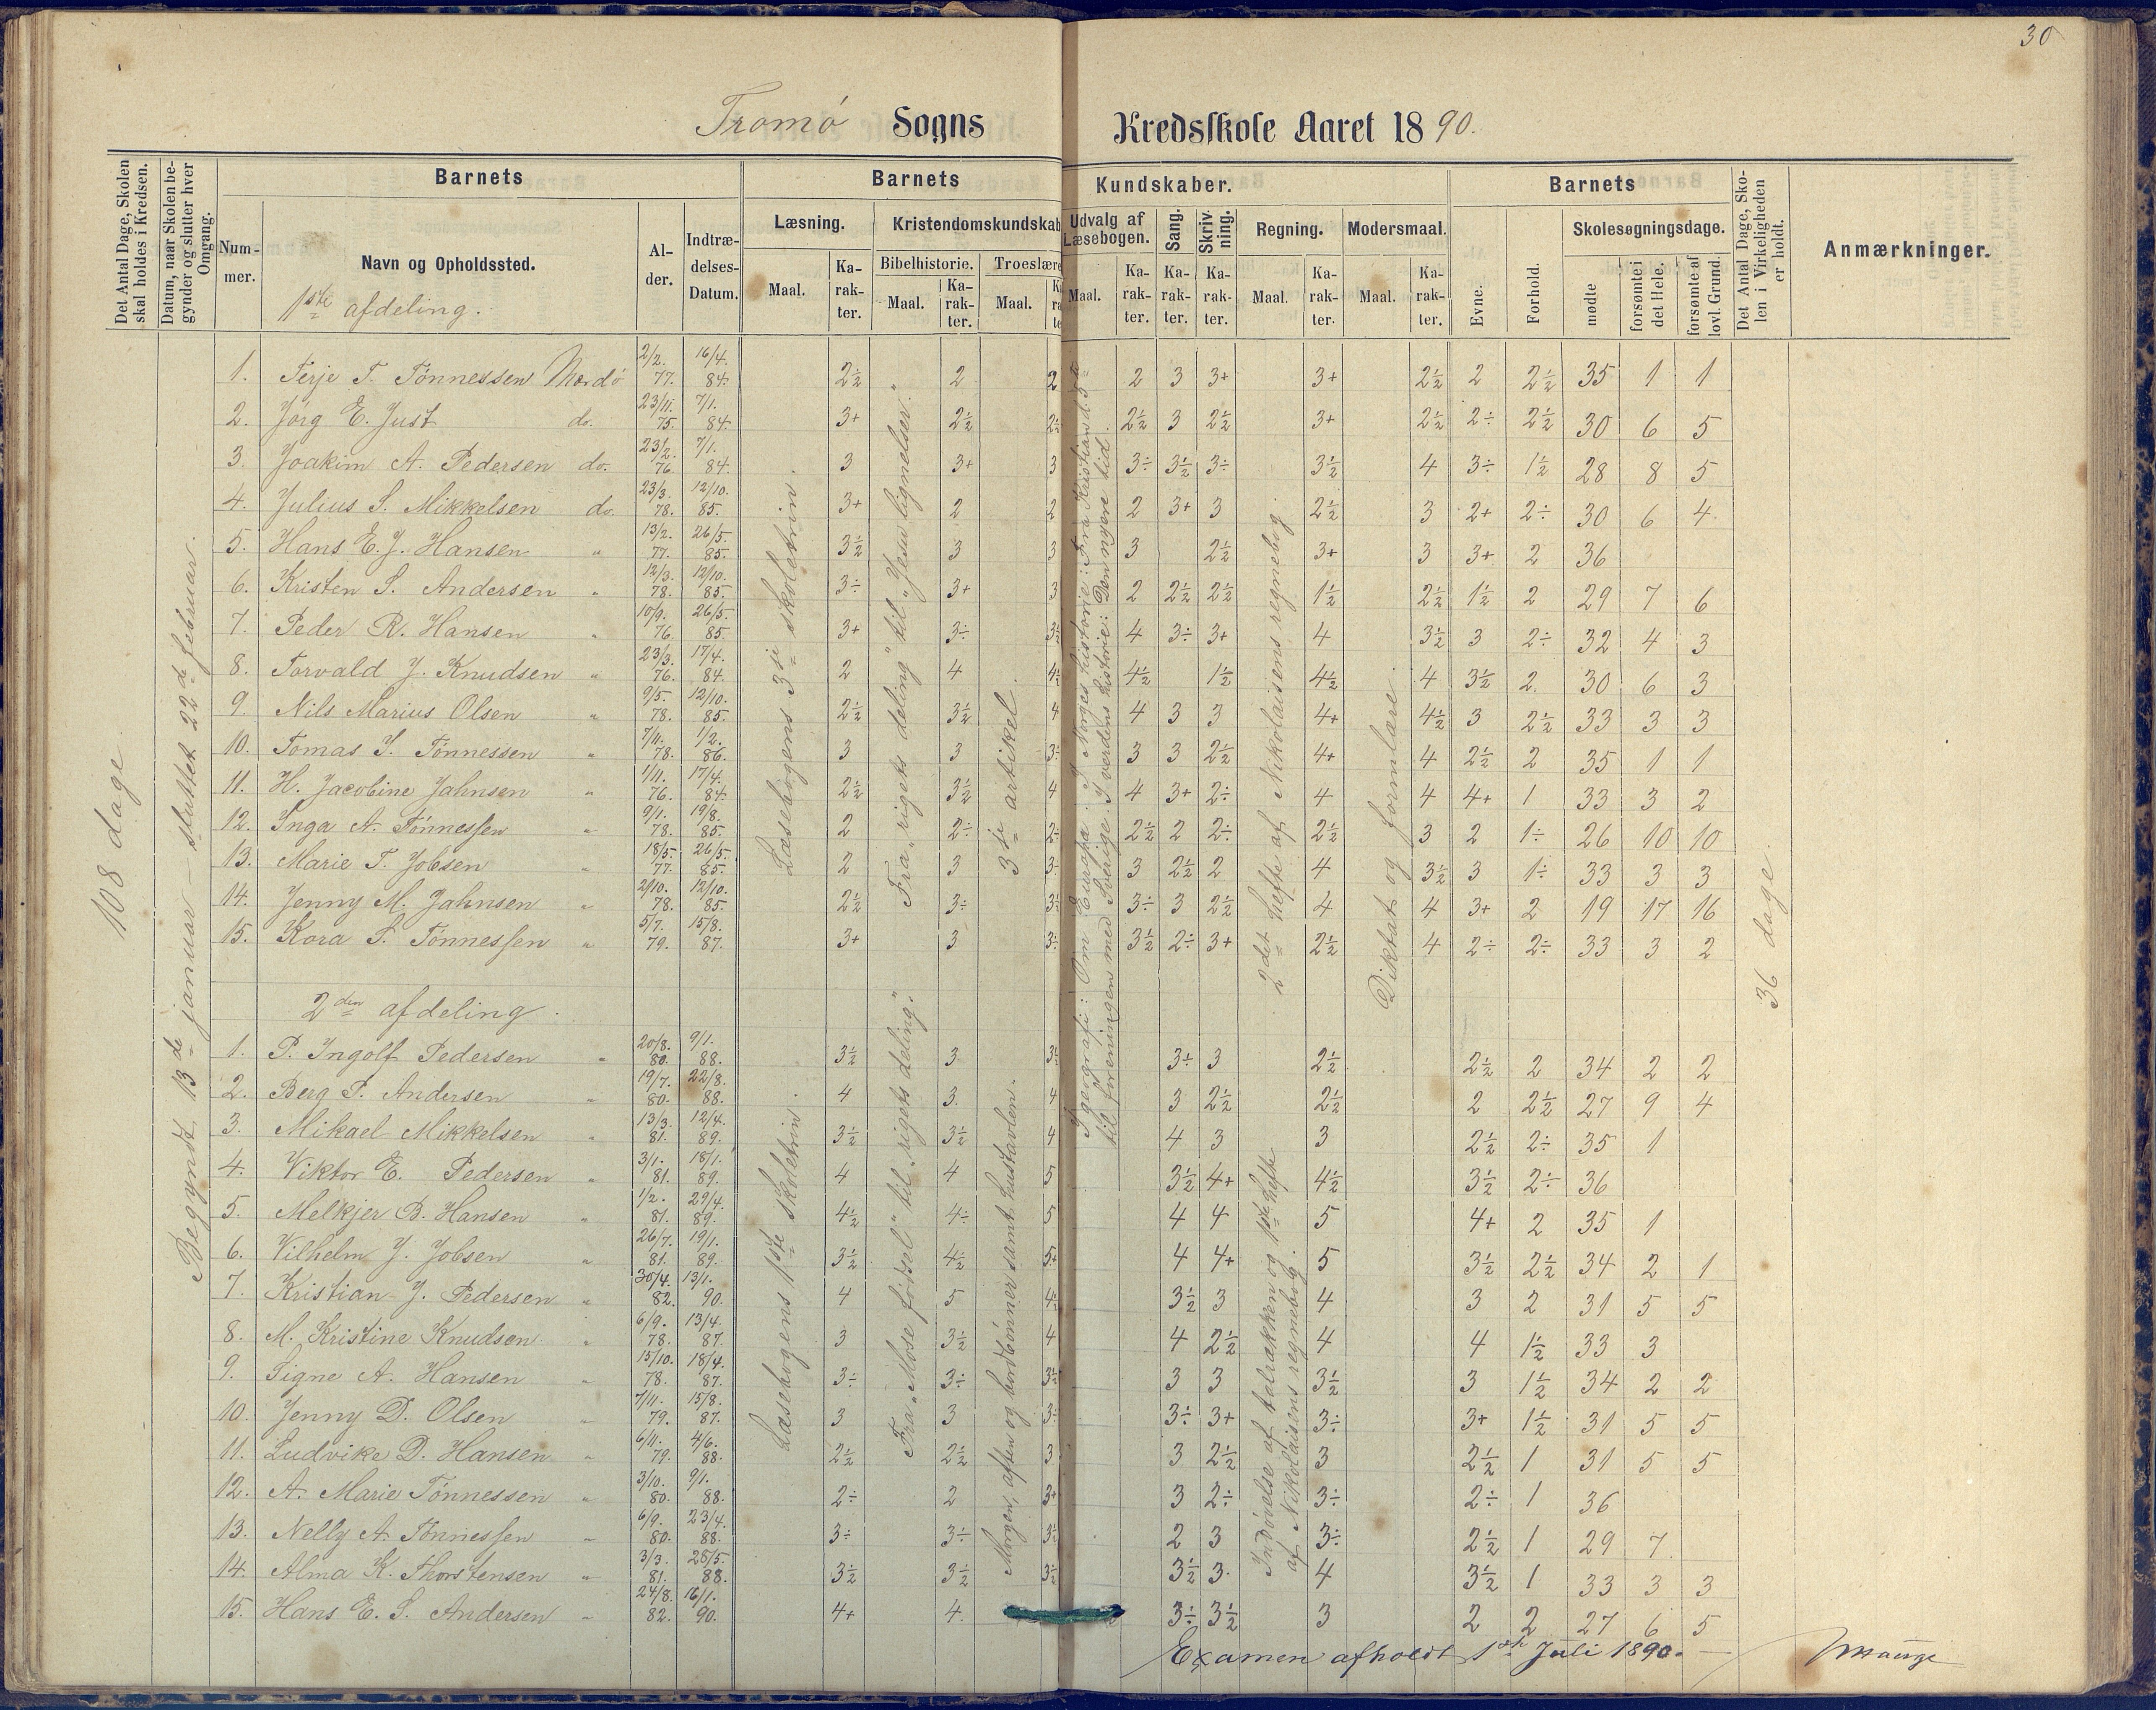 30
Tromø Sogns Kredsskole Aaret 1890.
Det Antal Dage, Skolen skal holdes i Kredsen.
Datum, naar Skolen begynder og slutter hver Omgang.
Barnets
Barnets Kundskaber.
Barnets
Det Antal Dage, Skolen i Virkeligheden er holdt.
Anmærkninger.
Nummer.
Navn og Opholdssted.
Alder.
Indtrædelses-Datum.
Læsning.
Kristendomskundskab
Udvalg af Læsebogen.
Sang.
Skrivning.
Regning.
Modersmaal.
Evne.
Forhold.
Skolesøgningsdage.
Bibelhistorie.
Troeslære
Maal.
Karakter.
Maal.
Karakter.
Maal.
Maal.
Karakter.
Karakter.
Karakter.
Maal.
Karakter.
Maal.
Karakter.
mødte
forsømte i det Hele.
forsømte af lovl. Grund.
108 dage
Begyndt 13de januar – sluttet 22de februar.
Læsebogens 3die skoletrin.
Fra „rigets deling" til „Jesu lignelser."
3die artikel.
I geografi: Om Europa. I Norges historie: Fra Kristian d. 5te
til foreningen med Sverige. I verdens historie: Den nyere tid.
2det hefte af Nikolaisens regnebog.
Diktat og formlære.
36 dage.
1ste afdeling.
1. Terje T. Tønnessen Mærdø 2/2. 77. 16/4. 84. 2½ 2 2 2 3 3+ 3+ 2½ 2 2½ 35 1 1
2. Jørg E. Just do. 23/11. 75. 7/1. 84. 3+ 2½ 2½ 2½ 3 2½ 3+ 2½ 2÷ 2½ 30 6 5
3. Joakim A. Pedersen do. 23/2. 76. 7/1. 84. 3 3+ 3 3÷ 3½ 3÷ 3½ 4 3÷ 1½ 28 8 5
4. Julius S. Mikkelsen do. 23/3. 78. 12/10. 85. 3+ 2 2 2 3+ 3 2½ 3 2+ 2÷ 30 6 4
5. Hans E. J. Hansen " 13/2. 77. 26/5. 85. 3½ 3 3 3 2½ 3+ 3 3+ 2 36
6. Kristen S. Andersen " 12/3. 78. 12/10. 85. 3÷ 3+ 3 2 2½ 2½ 1½ 2½ 1½ 2 29 7 6
7. Peder R. Hansen " 10/9. 76. 26/5. 85. 3+ 3÷ 3½ 4 3÷ 3+ 4 3½ 3 2÷ 32 4 3
8. Torvald J. Knudsen " 23/3. 76. 17/4. 84. 2 4 4½ 4½ 1½ 4½ 4 3½ 2 30 6 3
9. Nils Marius Olsen " 9/5. 78. 12/10. 85. 2½ 3½ 4 4 3 3 4+ 4½ 3 2½ 33 3 3
10. Tomas S. Tønnessen " 7/11. 78. 1/2. 86. 3 3 3÷ 3 3 2½ 4+ 4 2½ 2 35 1 1
11. H. Jacobine Jahnsen " 1/11. 76. 17/4. 84. 2½ 3½ 4 4 3+ 2÷ 4 4 4+ 1 33 3 2
12. Inga A. Tønnessen " 9/1. 78. 19/8. 85. 2 2÷ 2÷ 2½ 2 2÷ 2½ 3 2 1÷ 26 10 10
13. Marie T. Jobsen " 18/5. 77. 26/5. 85. 2 3 3÷ 3 2½ 2 4 3½ 3 1÷ 33 3 3
14. Jenny M. Jahnsen " 2/10. 78. 12/10. 85 2½ 3÷ 3½ 3÷ 3 2½ 4 4 3+ 2 19 17 16
15. Kora P. Tønnessen " 5/7. 79. 15/8. 87. 3+ 3 3÷ 3½ 2÷ 3+ 2½ 4 2÷ 2÷ 33 3 2
2den afdeling.
Læsebogens 1ste skoletrin.
Fra „Mose fødsel" til „rigets deling".
Morgen, aften og bordbønner samt hustavlen.
Indøvelse af talrækken og 1ste hefte
af Nikolaisens regnebog.
1. P. Ingolf Pedersen " 20/8. 80. 9/1. 88. 3½ 3 3½ 3÷ 3 2½ 2½ 2 34 2 2
2. Berg P. Andersen " 19/7. 80. 22/8. 88. 4 3 4 3 2½ 2½ 2 2½ 27 9 4
3. Mikael Mikkelsen " 13/3. 81. 12/4. 89. 3½ 3½ 4 4 3 3 2½ 2÷ 35 1
4. Viktor E. Pedersen " 3/1. 81. 18/1. 89. 4 4 5 3½ 4+ 4½ 3½ 2÷ 36
5. Melkjer B. Hansen " 1/2. 81. 29/4. 89. 4½ 4÷ 5 4 4 5 4+ 2 35 1
6. Vilhelm J. Jobsen " 26/7. 81. 19/1. 89. 3½ 4½ 5+ 4 4+ 5 3½ 2½ 34 2 1
7. Kristian J. Pedersen " 30/4. 82. 13/1. 90. 4 5 4½ 3½ 3 4 3 2 31 5 5
8. M. Kristine Knudsen " 6/9. 78. 13/4. 87. 3 3½ 4 4 2½ 4 4 1½ 33 3
9. Signe A. Hansen " 15/10. 78. 18/4. 87. 3÷ 3÷ 3½ 3 3 3½ 3 1½ 34 2 2
10. Jenny D. Olsen " 7/11. 79. 15/8. 87. 3 3 3÷ 3÷ 3+ 3÷ 3+ 1½ 31 5 5
11. Ludvike D. Hansen " 6/11. 79. 4/6. 88. 2½ 2½ 3 3 2½ 3 2½ 1 31 5 5
12. A. Marie Tønnessen " 3/10. 80. 9/1. 88. 2÷ 2 3+ 3 2÷ 3÷ 2÷ 1 36
13. Nelly A. Tønnessen " 6/9. 80. 23/4. 88. 3÷ 3÷ 3½ 2 3 3÷ 2½ 1 29 7
14. Alma K. Thorstensen " 3/3. 81. 25/5. 88. 3½ 3½ 3½ 3½ 3 4 3½ 1 33 3 3
15. Hans E. S. Andersen " 24/8. 82. 16/1. 90. 4+ 4 3÷ 3½ 3 2 2 27 6 5
Examen afholdt 1ste Juli 1890. —